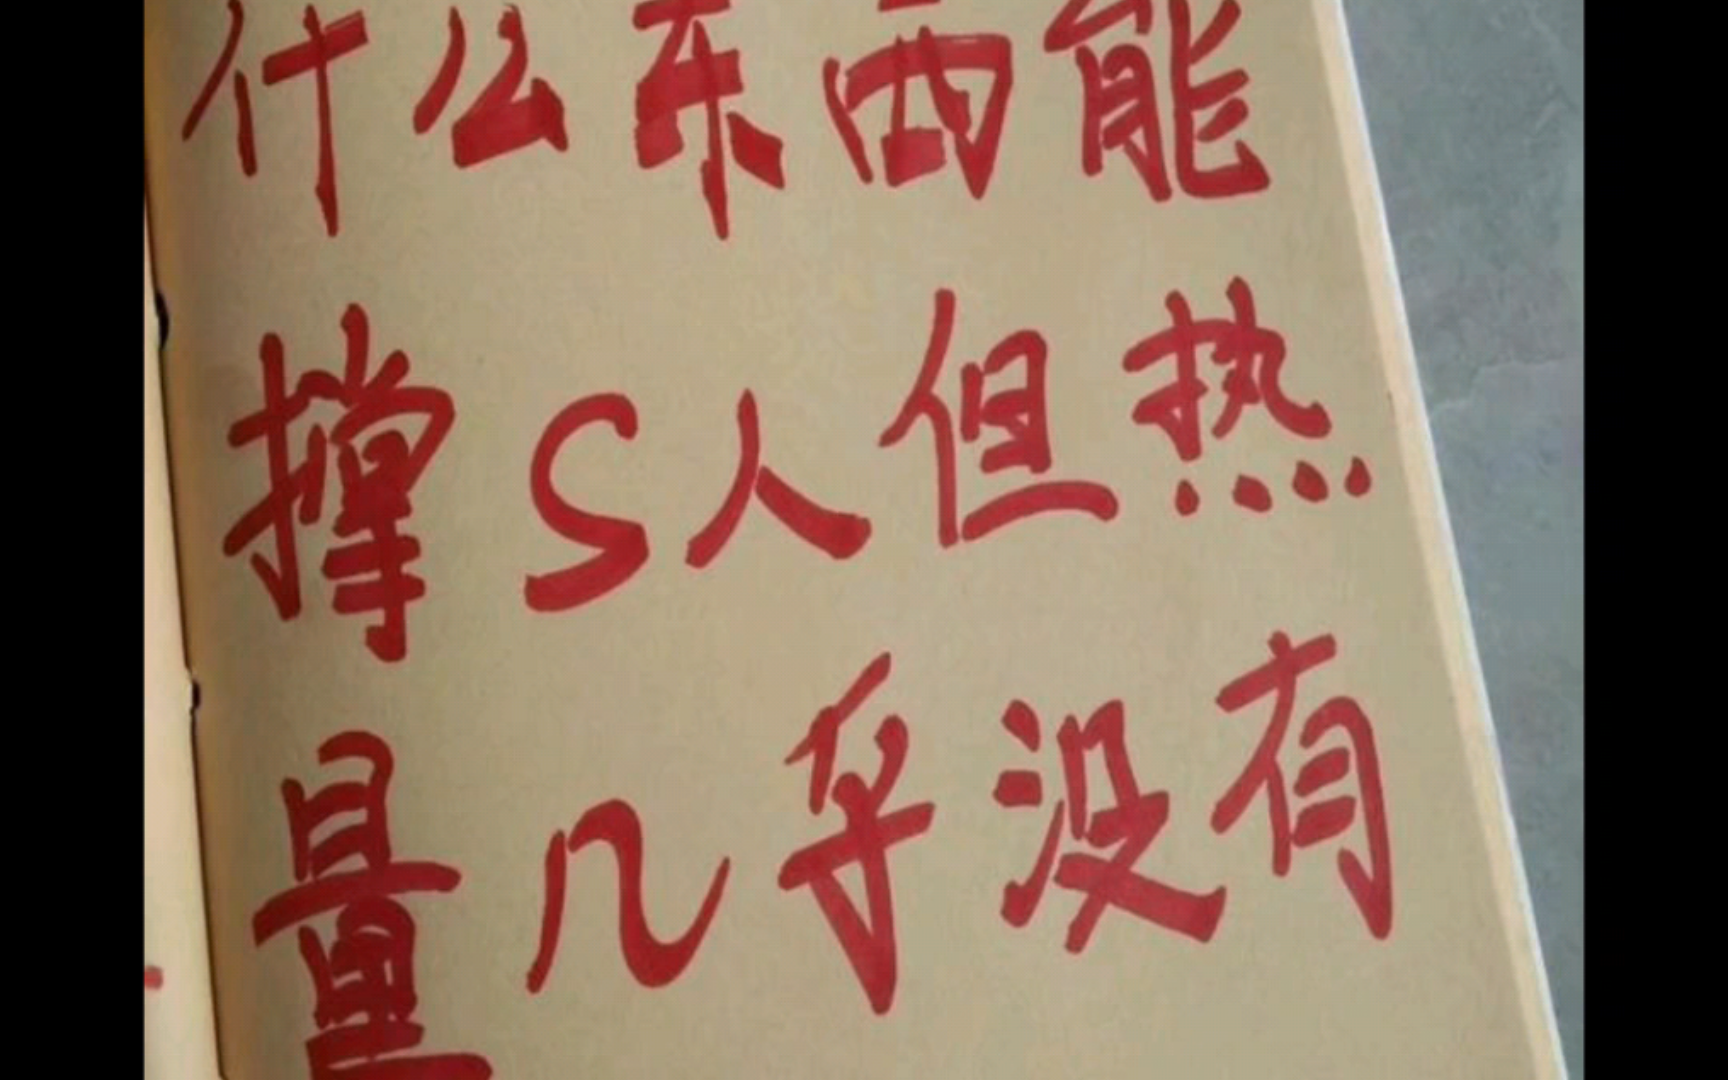 什么东西能
撑S人但热
量几乎没有